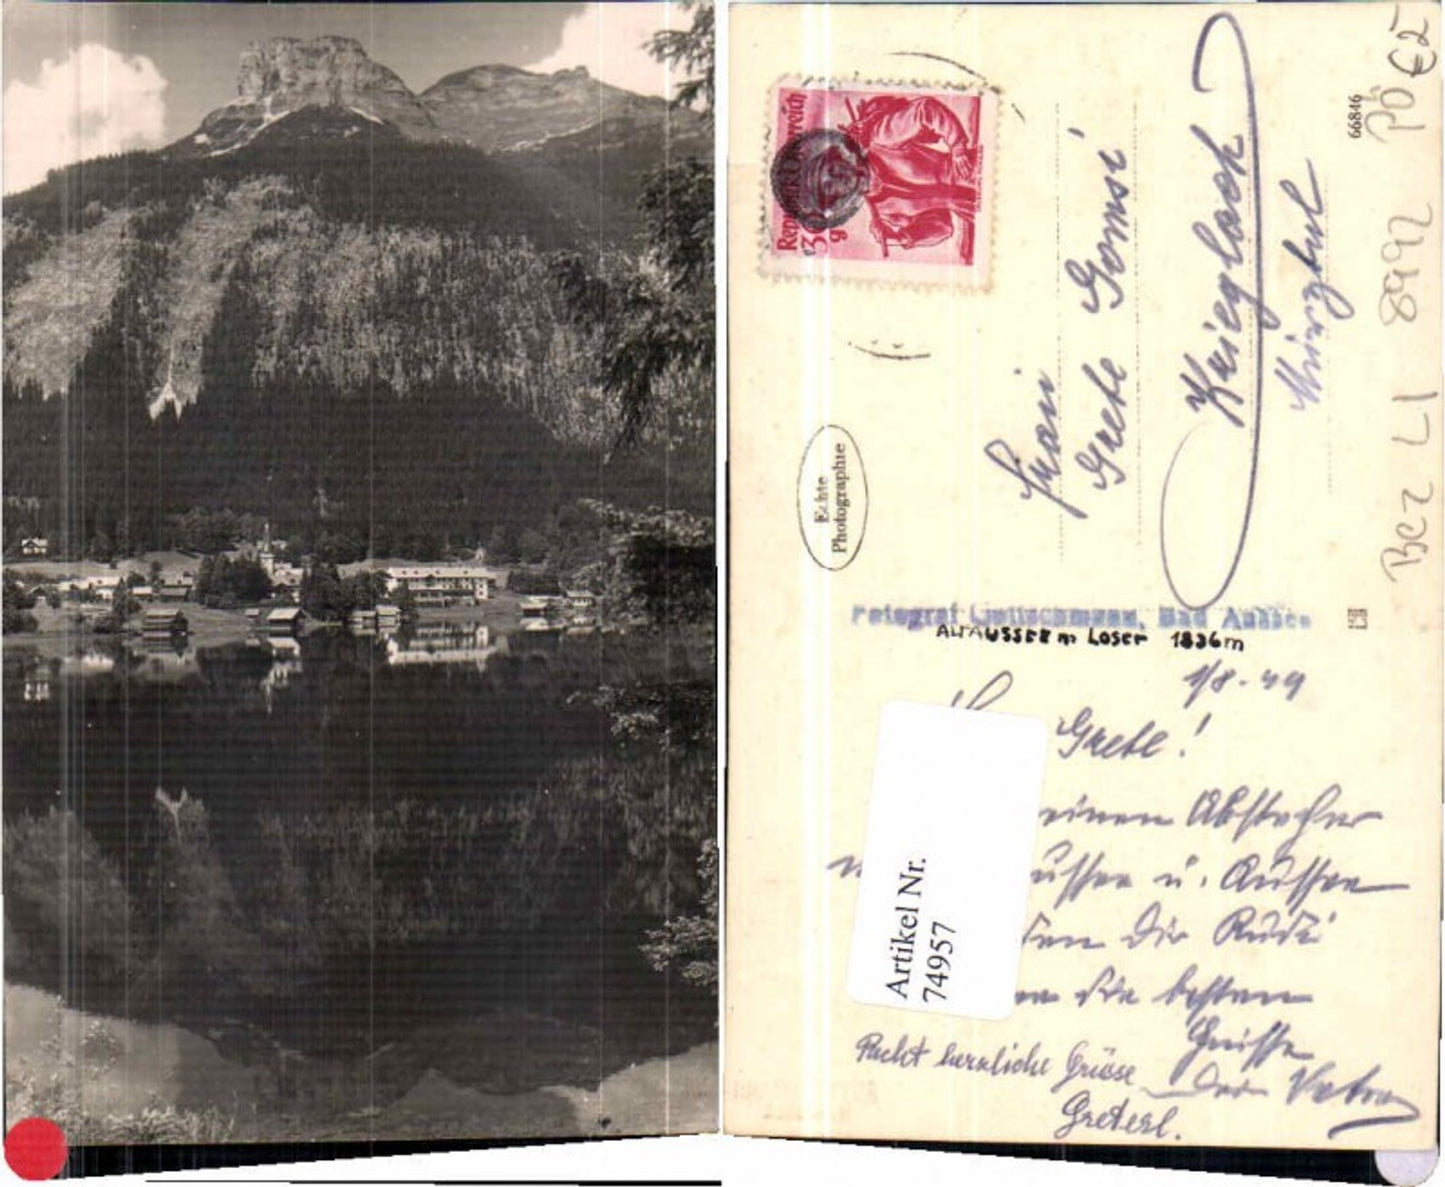 Republik Österreich
30
g
Echte
Photographie
Frau
Grete Gomsi
Krieglach
Mürztal
66846
€2
Fotograf Bad Aussee
ALTAUSSEE m Loser 1836m
1/8.-49
Grete!
einen Abstecher
ussee u. Aussee
den Dir Rudi
die besten
Grüsse
Dein Vater
Recht herzliche Grüsse
Greterl.
Artikel Nr.
74957